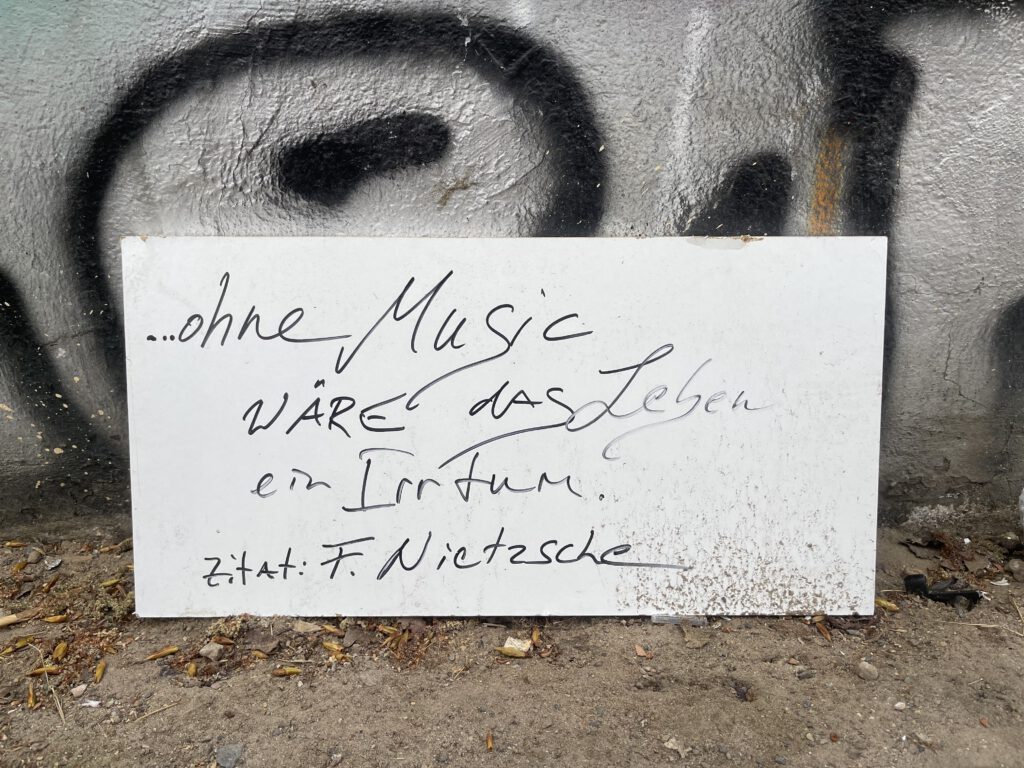 ...ohne Music
WÄRE das Leben
ein Irrtum.
Zitat: F. Nietzsche